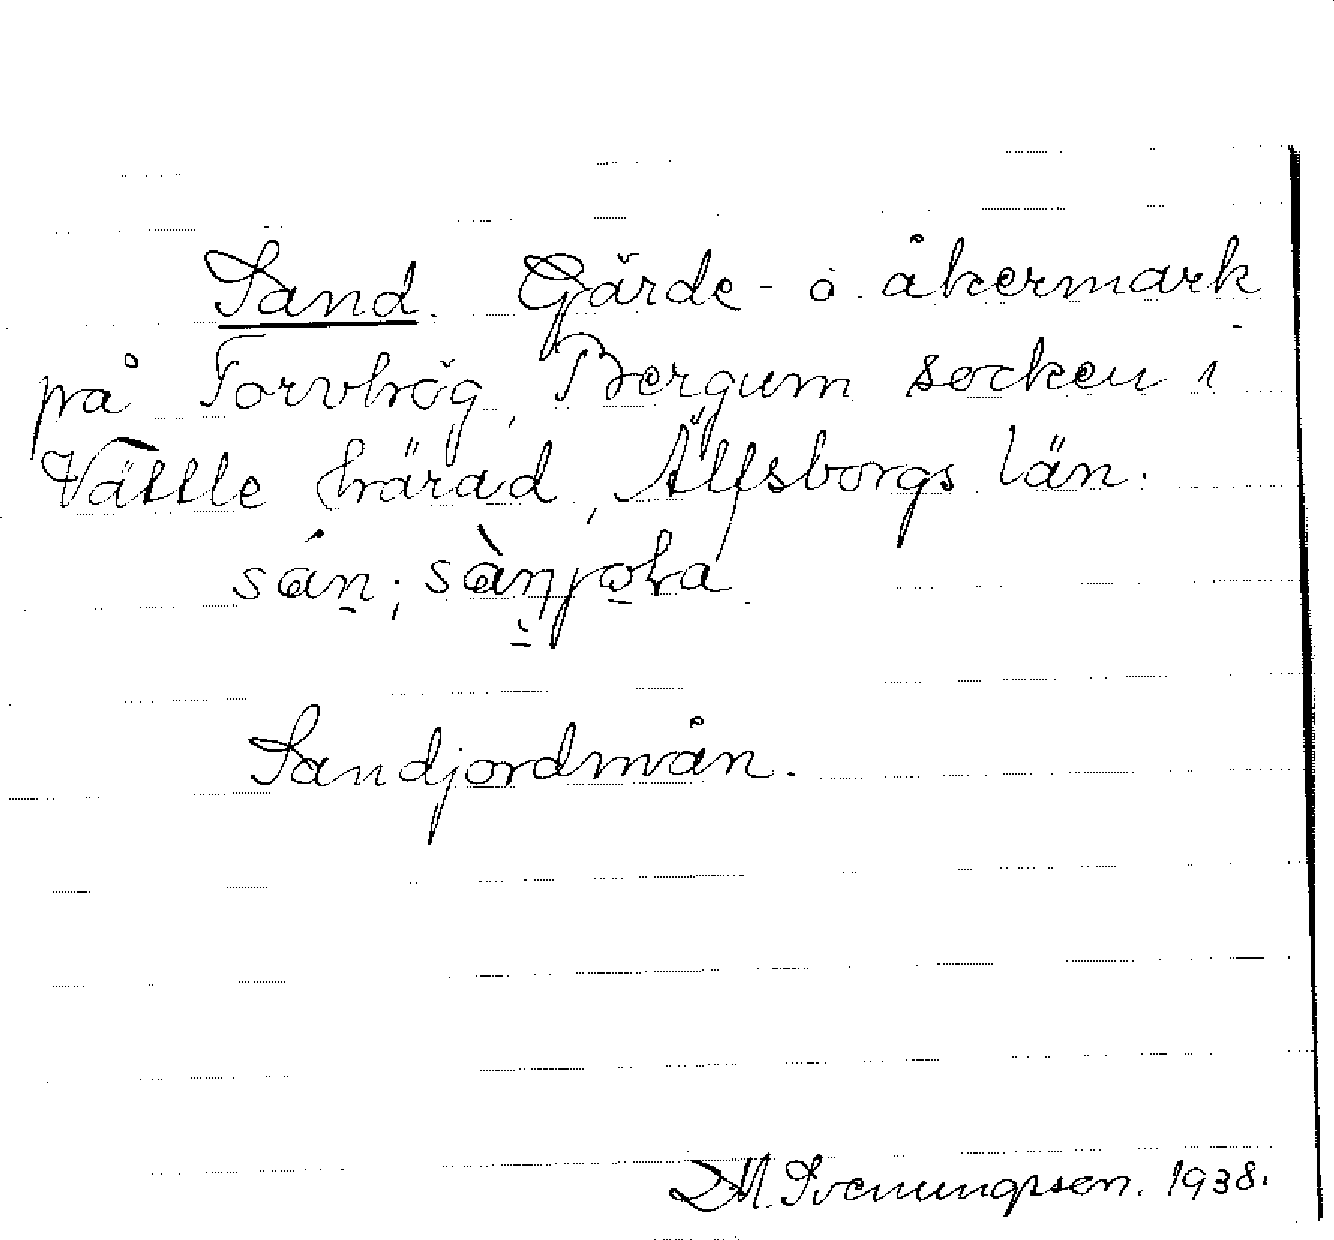 Sand. Gärde- o. åkermark
på Torvhög, Bergum socken i
Vättle härad, Älfsborgs län.
sán;
Sandjordmån.
D.M. Svenungsson. 1938.